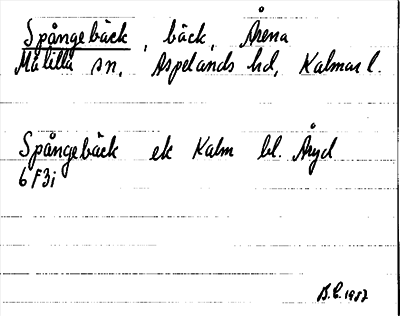 Spångebäck, bäck, Årena
Målilla sn, Aspelands hd, Kalmar l.
Spångebäck ek Kalm bl. Åryd
6F3i
B.E. 1987